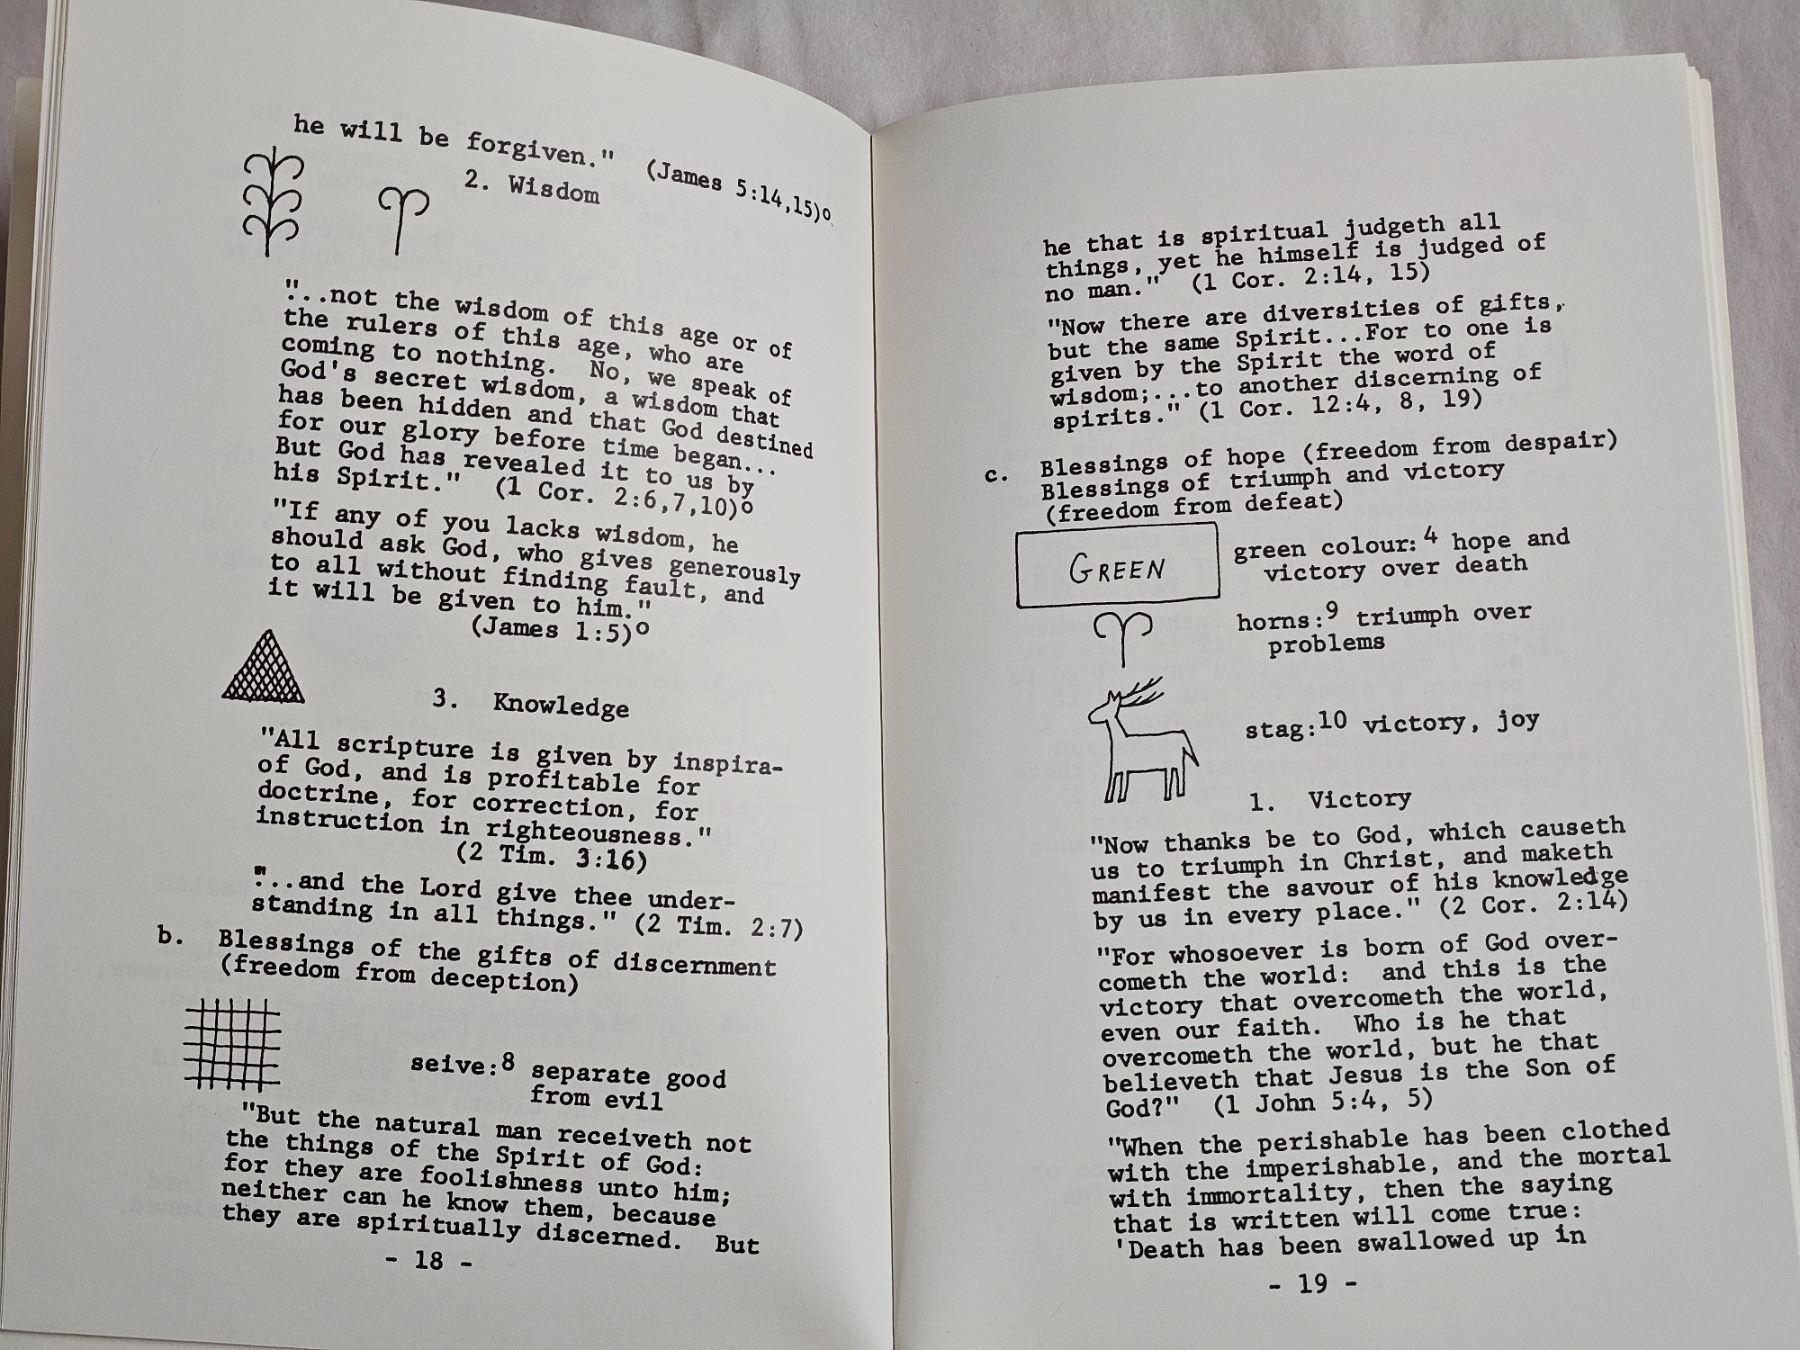 he will be forgiven." (James 5:14,15)o
2. Wisdom
"...not the wisdom of this age or of
the rulers of this age, who are
coming to nothing. No, we speak of
God's secret wisdom, a wisdom that
has been hidden and that God destined
for our glory before time began...
But God has revealed it to us by
his Spirit." (1 Cor. 2:6,7,10)o
"If any of you lacks wisdom, he
should ask God, who gives generously
to all without finding fault, and
it will be given to him."
(James 1:5)o
3. Knowledge
"All scripture is given by inspira-
of God, and is profitable for
doctrine, for correction, for
instruction in righteousness."
(2 Tim. 3:16)
"...and the Lord give thee under-
standing in all things." (2 Tim. 2:7)
b. Blessings of the gifts of discernment
(freedom from deception)
seive:8 separate good
from evil
"But the natural man receiveth not
the things of the Spirit of God:
for they are foolishness unto him;
neither can he know them, because
they are spiritually discerned. But
- 18 -
he that is spiritual judgeth all
things, yet he himself is judged of
no man." (1 Cor. 2:14, 15)
"Now there are diversities of gifts,
but the same Spirit...For to one is
given by the Spirit the word of
wisdom;...to another discerning of
spirits." (1 Cor. 12:4, 8, 19)
c. Blessings of hope (freedom from despair)
Blessings of triumph and victory
(freedom from defeat)
GREEN
green colour:4 hope and
victory over death
horns:9 triumph over
problems
stag:10 victory, joy
1. Victory
"Now thanks be to God, which causeth
us to triumph in Christ, and maketh
manifest the savour of his knowledge
by us in every place." (2 Cor. 2:14)
"For whosoever is born of God over-
cometh the world: and this is the
victory that overcometh the world,
even our faith. Who is he that
overcometh the world, but he that
believeth that Jesus is the Son of
God?" (1 John 5:4, 5)
"When the perishable has been clothed
with the imperishable, and the mortal
with immortality, then the saying
that is written will come true:
'Death has been swallowed up in
- 19 -